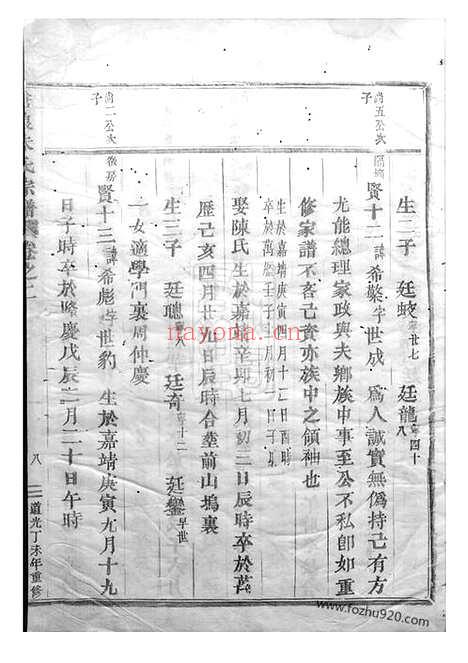 尚五公次子
尚二公次子
生二子 廷蛟寧廿七 廷龍寧四十八
賢十二諱希繁字世成 為人誠實無偽持己有方
尤能總理家政與夫鄉族中事至公不私卽如重
修家譜不吝己資亦族中之領袖也
生於嘉靖庚寅四月十二日酉時
卒於萬曆壬子十一月初一日子時
娶陳氏生於嘉靖辛卯七月初二日辰時卒於萬
歷己亥四月廿九日辰時合塟前山塢裏
生三子 廷聰 廷奇 廷鑾早世
一女適學門裏周仲慶
賢十三諱希彪字世豹 生於嘉靖庚寅九月十九
日子時卒於隆慶戊辰三月二十日午時
宗譜 卷之二
八
道光丁未年重修
nayona.cn
www.fozhu920.com